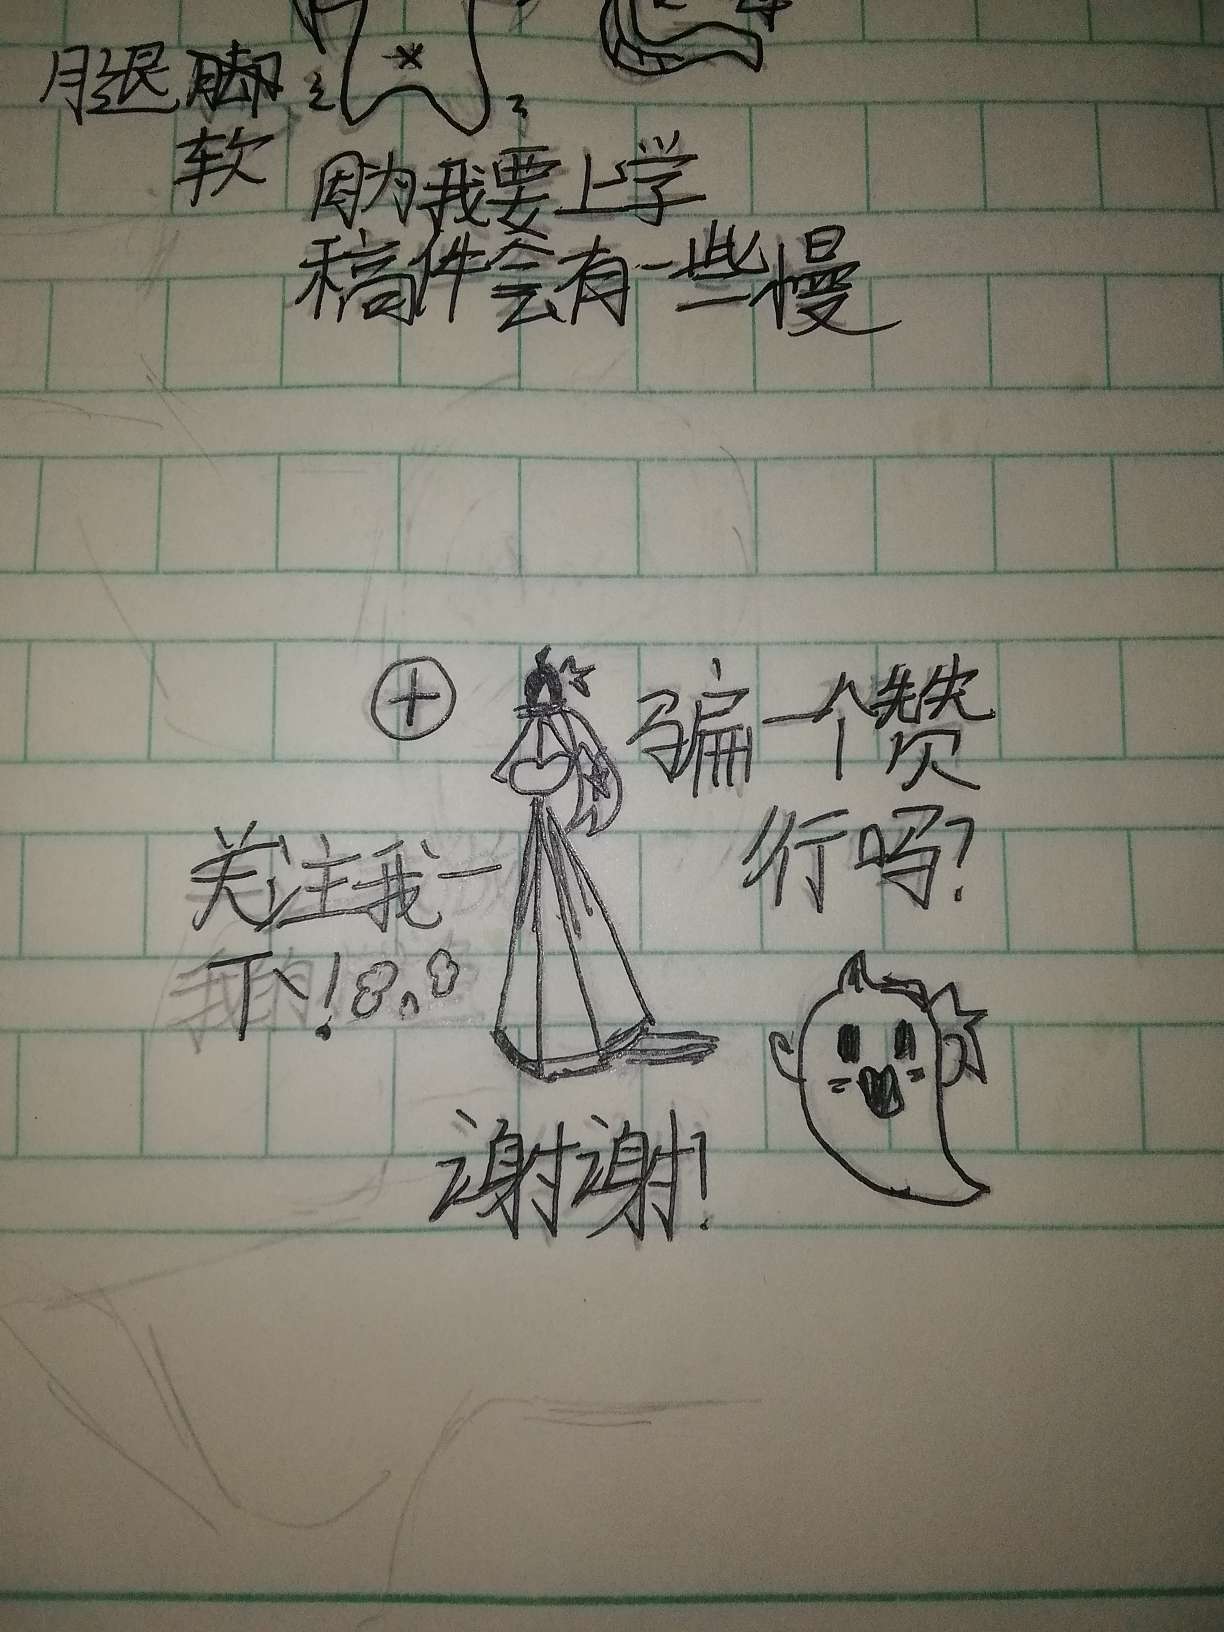 腿脚
软
因为我要上学
稿件会有一些慢
骗一个赞
行吗?
关注我一
下!
谢谢!